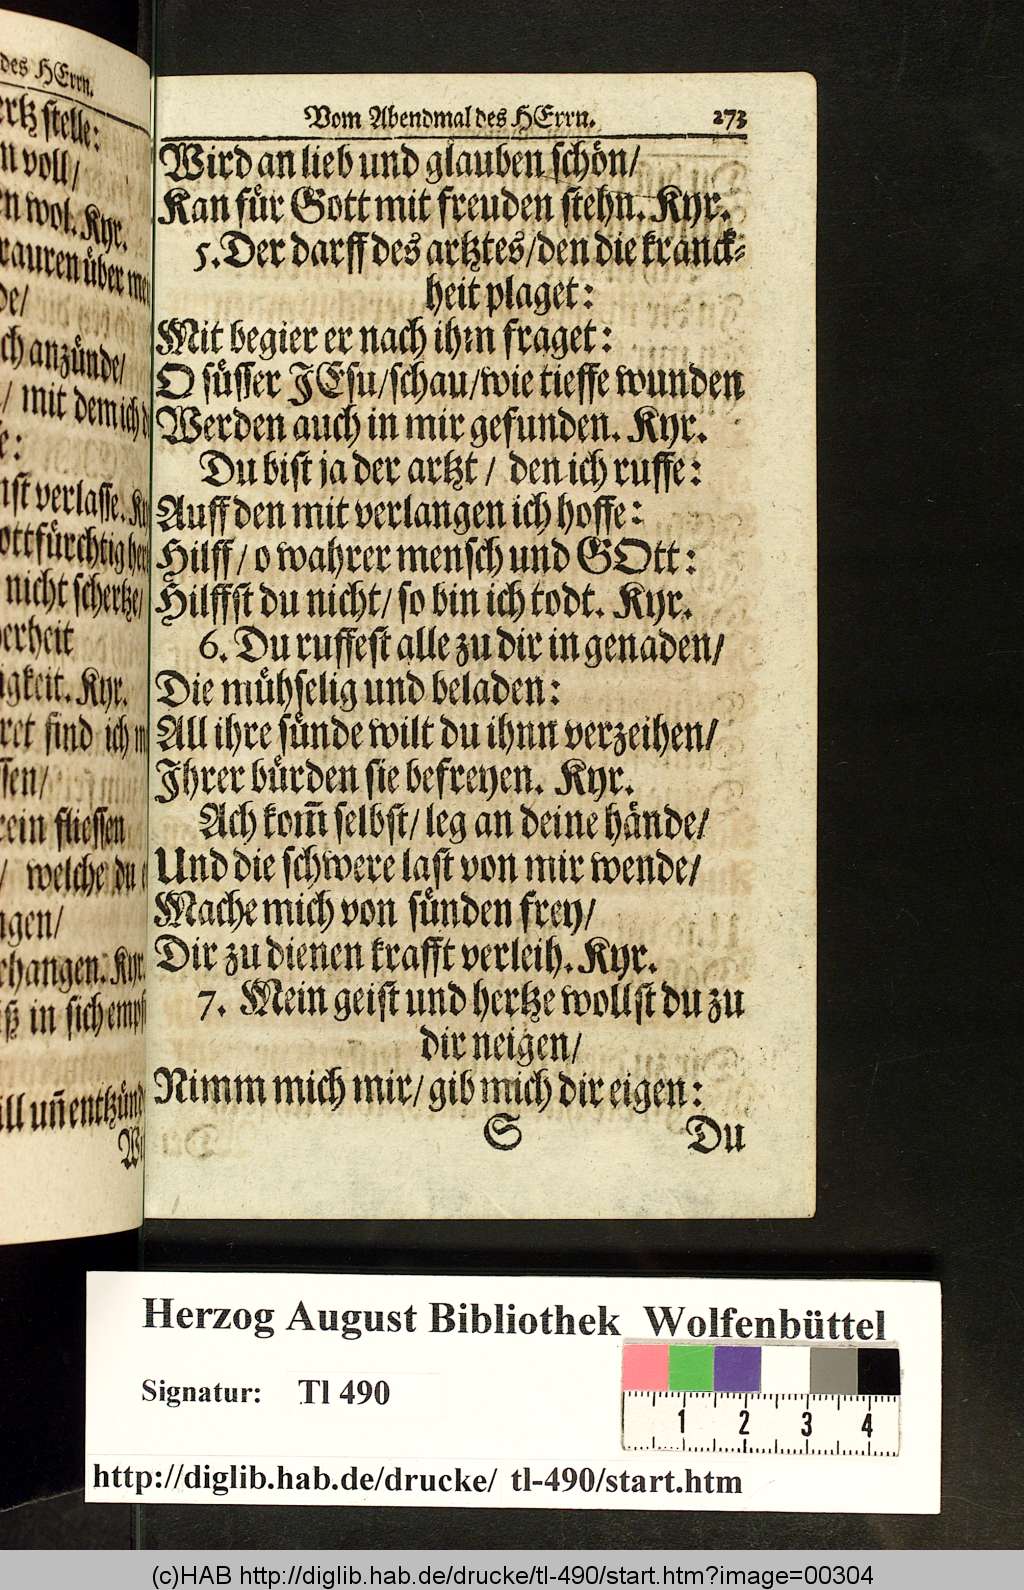 des HErrn.
ertz stelle:
n voll/
en wol. Kyr.
rauren über
de/
ch anzünde/
/ mit dem ich
e:
nst verlasse.
ottfürchtig
nicht schertze/
erheit
igkeit. Kyr.
ret find ich
ssen/
rein fliessen
/ welche du
ngen/
rhangen. Kyr.
iß in sich
ill uñ entzünd
Vom Abendmal des HErrn. 273
Wird an lieb und glauben schön/
Kan für Gott mit freuden stehn. Kyr.
5. Der darff des artztes/den die kranck-
heit plaget:
Mit begier er nach ihm fraget:
O süsser JEsu/schau/wie tieffe wunden
Werden auch in mir gefunden. Kyr.
Du bist ja der artzt / den ich ruffe:
Auff den mit verlangen ich hoffe:
Hilff/ o wahrer mensch und GOtt:
Hilffst du nicht/ so bin ich todt. Kyr.
6. Du ruffest alle zu dir in genaden/
Die mühselig und beladen:
All ihre sünde wilt du ihnn verzeihen/
Jhrer bürden sie befreyen. Kyr.
Ach kom̃ selbst/ leg an deine hände/
Und die schwere last von mir wende/
Mache mich von sünden frey/
Dir zu dienen krafft verleih. Kyr.
7. Mein geist und hertze wollst du zu
dir neigen/
Nimm mich mir/ gib mich dir eigen:
S Du
Herzog August Bibliothek Wolfenbüttel
Signatur: Tl 490
1 2 3 4
http://diglib.hab.de/drucke/ tl-490/start.htm
(c)HAB http://diglib.hab.de/drucke/tl-490/start.htm?image=00304